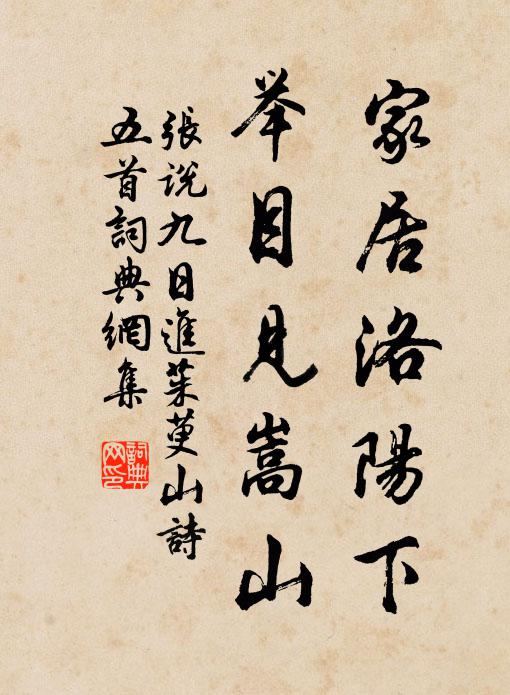 家居洛陽下
举目見嵩山
張說九日進茱萸山詩
五首詞典網集
詞典網印